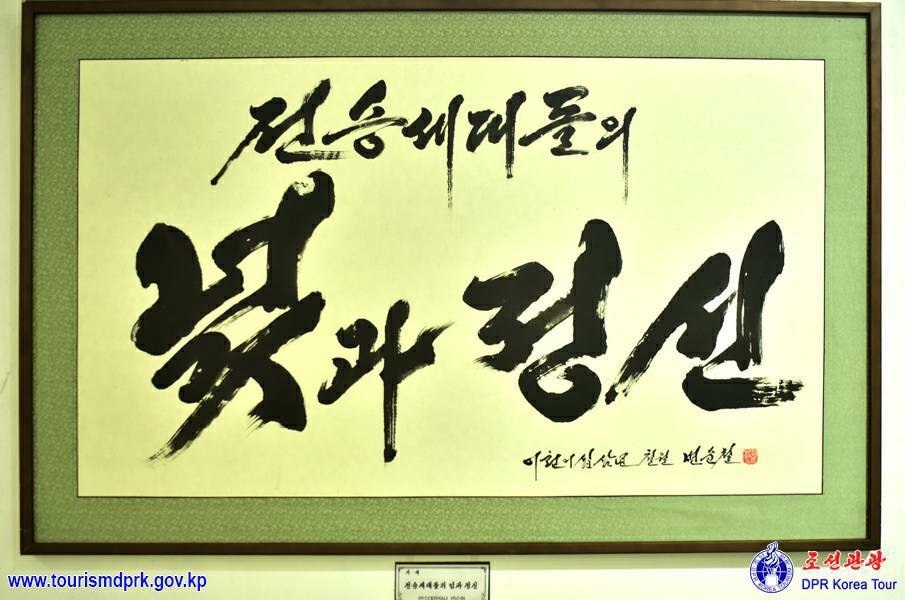 전승세대들의
넋과 정신
이천이십삼년 칠월
서예
전승세대들의 넋과 정신
www.tourismdprk.gov.kp
조선관광
DPR Korea Tour